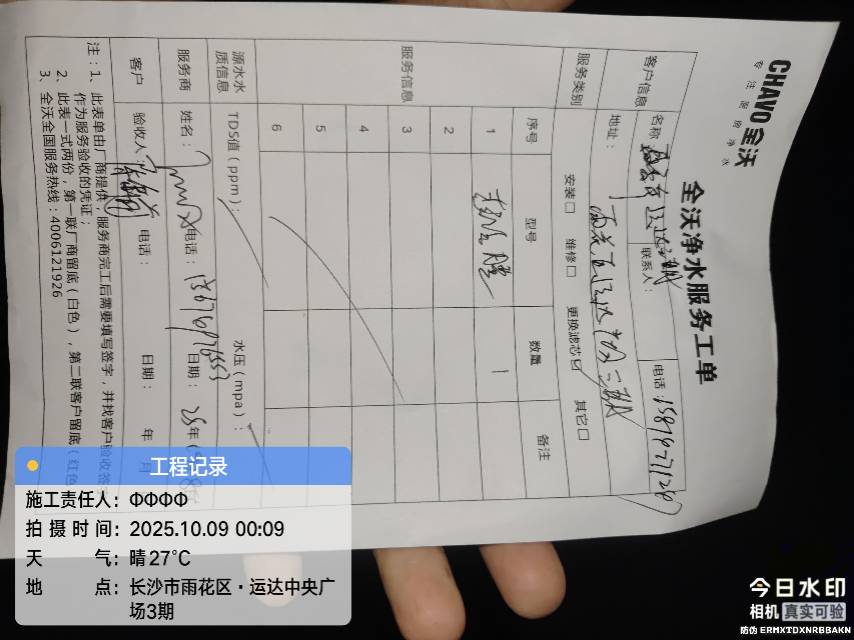 CHAVO 全沃
专注家的净水
全沃净水服务工单
客户信息
名称：
联系人：
电话：
地址：
服务类别
安装□ 维修□ 更换滤芯☑ 其它□
服务信息
序号 型号 数量 备注
1 1
2
3
4
5
6
源水水质信息
TDS值（ppm）：
水压（mpa）：
服务商
姓名：
电话：
日期：25年
客户
验收人：
电话：
日期： 年 月
注：1、此表单由厂商提供，服务商完工后需要填写签字，并找客户验收签
作为服务验收的凭证；
2、此表一式两份，第一联厂商留底（白色），第二联客户留底（红色
3、全沃全国服务热线：4006121926
工程记录
施工责任人：ФФФФ
拍摄时间：2025.10.09 00:09
天气：晴 27℃
地点：长沙市雨花区·运达中央广
场3期
今日水印
相机 真实可验
防伪 ERMXTDXNRBBAKN